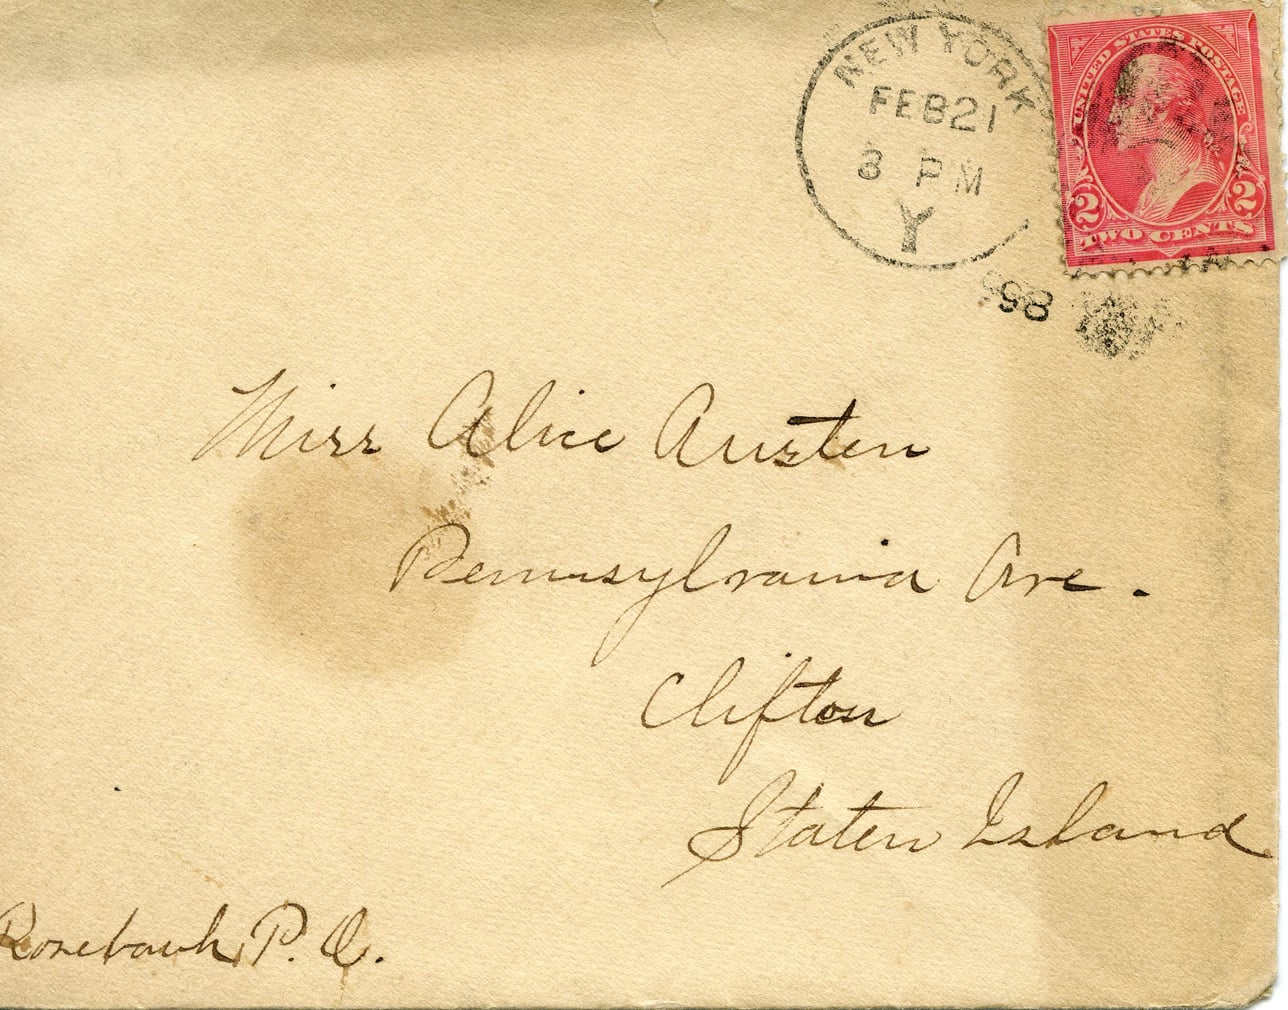 NEW YORK
FEB 21
8 PM
Y
UNITED STATES POSTAGE
2 2
TWO CENTS
Miss Alice Austen
Pennsylvania Ave.
Clifton
Staten Island
Rosebank P.O.